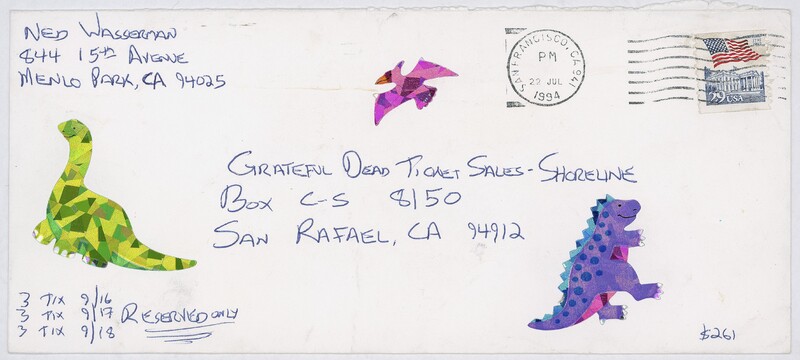 NED WASSERMAN
844 15th AVENUE
MENLO PARK, CA 94025
SAN FRANCISCO, CA 941
PM
29 JUL
1994
29 USA
GRATEFUL DEAD TICKET SALES - SHORELINE
BOX C-S 8150
SAN RAFAEL, CA 94912
3 TIX 9/16
3 TIX 9/17 RESERVED ONLY
3 TIX 9/18
$261